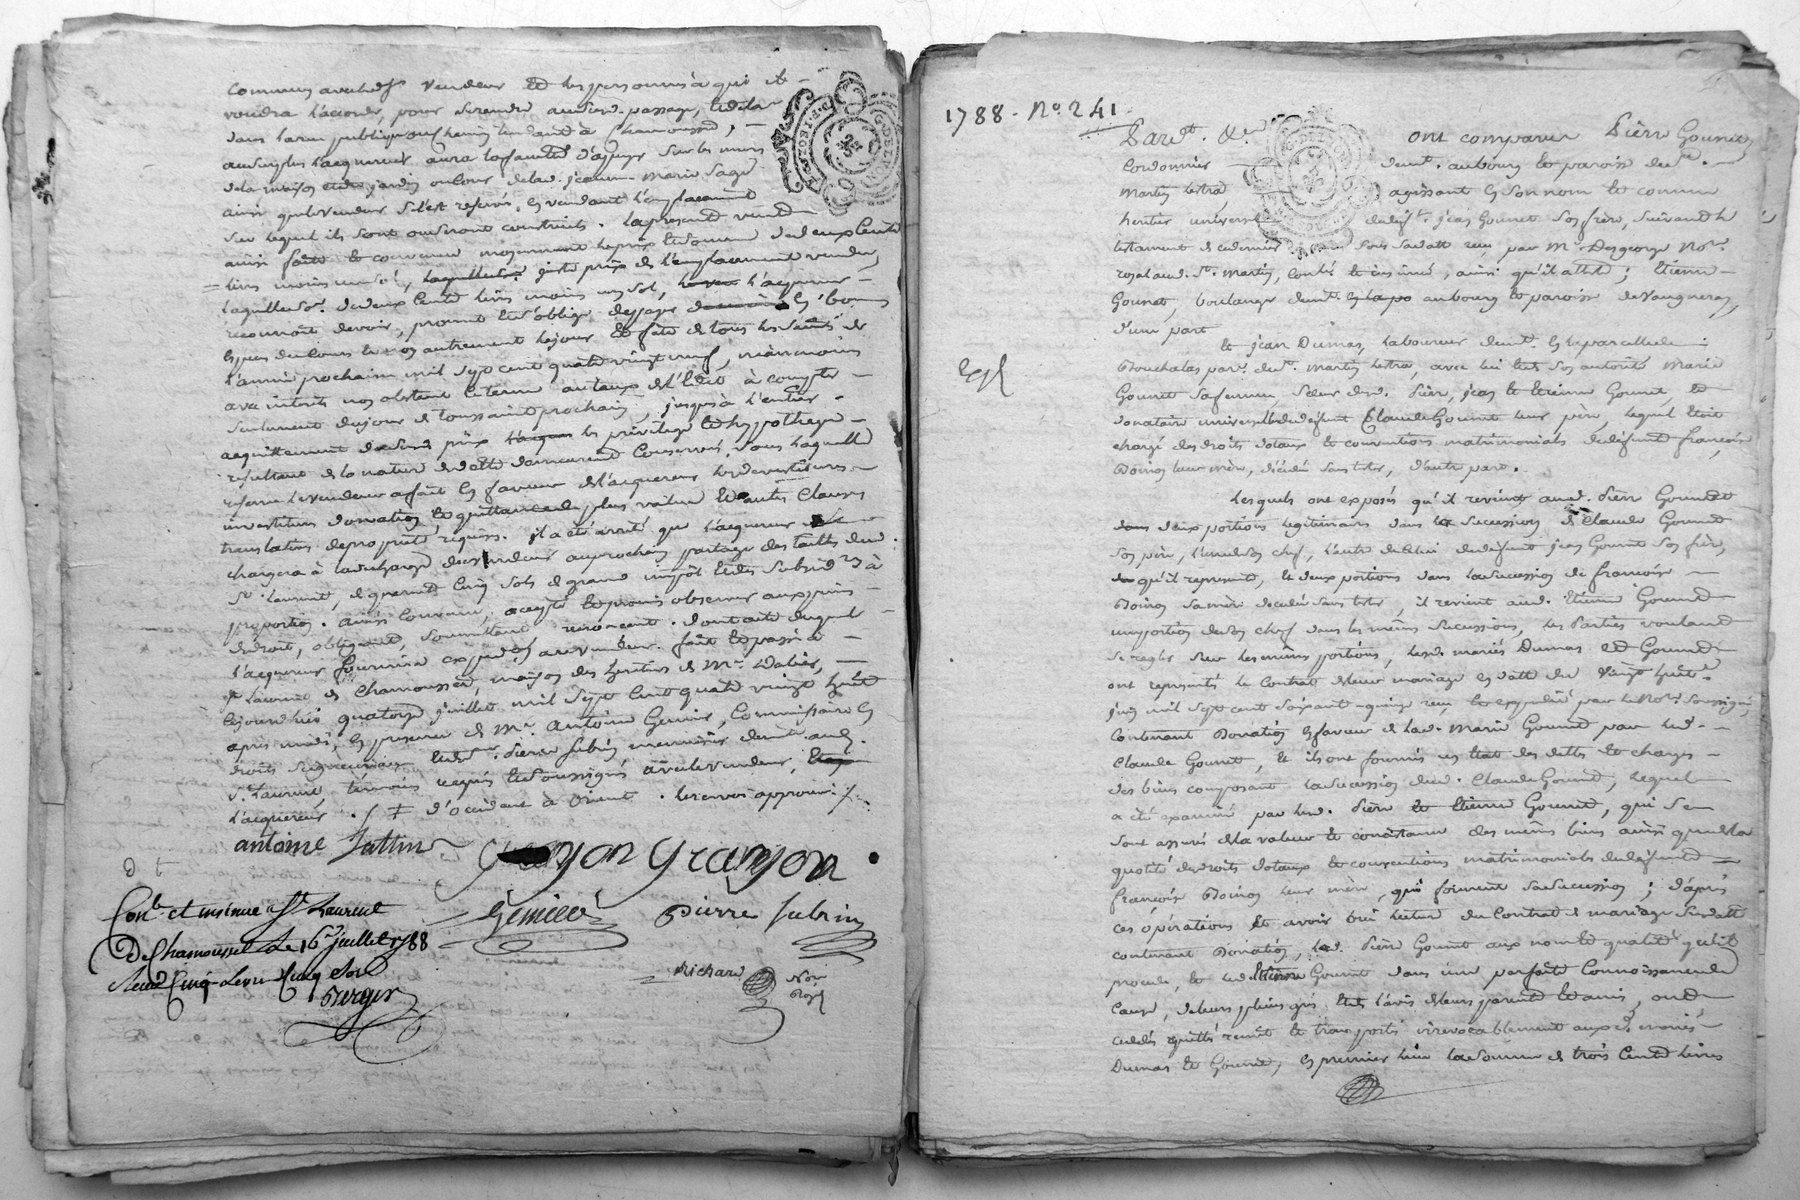 vendeur et les personnes à qui il
voudra l'accorder, pour se rendre audit passage,
dans la rue publique tendant à Chamousset,
l'acquereur aura la faculté d'apuyer sur les murs
de la maison jardin jeanne marie
ainsi que le vendeur s'est réservé, en vendant l'emplacement
sur lequel ils sont ou seront construits. la presente vente
ainsi faite et convenue moyennant le prix et somme de deux cents
livres moins un sol, juste prix de l'emplacement vendu,
laquelle somme de deux cents livres moins un sol, l'acquereur
reconnoit devoir, promet et s'oblige de payer en bonnes
especes de cours et non autrement le jour et fête de tous les saints de
l'année prochaine mil sept cent quatre vingt neuf, néanmoins
avec interets non obstant le terme au taux de l'Edit à compter
seulement du jour de toussaint prochain, jusques à l'entier
acquittement dudit prix les privilege et hypotheque
résultant de la nature de la dette demeurent conservés, sous laquelle
reserve le vendeur a fait en faveur de l'acquereur les devestitures
investitures donation et quittance de plus value et autres clauses
translatives de proprieté requises. il a été arrêté que l'acquereur se
chargera à la décharge du vendeur au prochain partage des tailles dud.
St Laurent, de quarante cinq sols de grand impôt et des subsides à
proportion. ainsi convenu, accepté et promis observer aux peines
de droit, obligeant, soumettant renonçant. dont acte duquel
l'acquereur fournira expedition au vendeur. fait et passé à
St Laurent de Chamousset, maison des heritiers de Mr
cejourd'hui quatorze juillet mil sept cent quatre vingt huit
après midi, en presence de Mr Antoine Genive, Commissaire en
droits seigneuriaux et de Sr Pierre Subrin menuisier demt aud.
St Laurent, témoins requis et soussignés avec le vendeur, et
l'acquereur. d'occident à orient. les renvois approuvés
antoine
Grayon Grayon
Conle et insinué a St Laurent
De Chamousset le 16 juillet 1788
Recu Cinq Livres Cinq sols
Berger
Pierre Subrin
Richard Nore
Royal
1788. No 241
Pardt. &c ont comparu Pierre Gounet
Cordonnier demt. au bourg et paroisse de St.
Martin lestra agissant en son nom et comme
heritier universel dudeft. jean Gounet son frère, suivant le
testament de ce dernier sous sa datte reçu par Me Desgeorge Nore.
royal aud. St. Martin, Controlé et insinué, ainsi qu'il atteste; Etienne
Gounet, boulanger demt. au bourg et paroisse de Vaugneray,
d'une part
Et jean Dumas, laboureur demt. en la parcelle de
Bouchalas parse. de St. Martin lestra, avec lui de son autorité Marie
Gounet sa femme, sœur desd. Pierre, jean et Etienne Gounet, et
donataire universelle du defunt Claude Gounet leur père, lequel étoit
chargé des droits dotaux et conventions matrimoniales de defunte françoise
Boinon leur mère, décédée sans tester, d'autre part.
Lesquels ont exposés qu'il revient aud. Pierre Gounet
dans deux portions legitimaires dans la succession de Claude Gounet
son père, l'une de son chef, l'autre de celui du defunt jean Gounet son frère,
qu'il represente, et deux portions dans la succession de françoise
Boinon sa mère decedée sans tester, il revient aud. Etienne Gounet
une portion de son chef dans les mêmes successions, les Parties voulant
se regler sur les mêmes portions, lesd. mariés Dumas et Gounet
ont representé le Contrat de leur mariage en datte du Vingt huit
juin mil sept cent soixante-quinze reçu et expedié par le Nore. soussigné,
contenant Donation en faveur de lad. Marie Gounet par led.
Claude Gounet, et ils ont fournis un état des dettes et charges
des biens composant la succession dud. Claude Gounet, lequel
a été examiné par lesd. Pierre et Etienne Gounet, qui se
sont assurés de la valeur et consistance des mêmes biens ainsi que de la
quotité des droits dotaux et conventions matrimoniales de defunte
françoise Boinon leur mère, qui forment sa succession; d'après
ces opérations et avoir oui lecture du Contrat de mariage susdatté
contenant Donation, led. Pierre Gounet aux nom et qualité qu'il
procede, et led. Etienne Gounet dans une parfaite connoissance de
cause, de leurs pleins gré et de l'avis de leurs parents et amis, ont
cedés quittés remit et transporté irrevocablement auxd. mariés
Dumas et Gounet, en premier lieu la somme de trois Cents livres